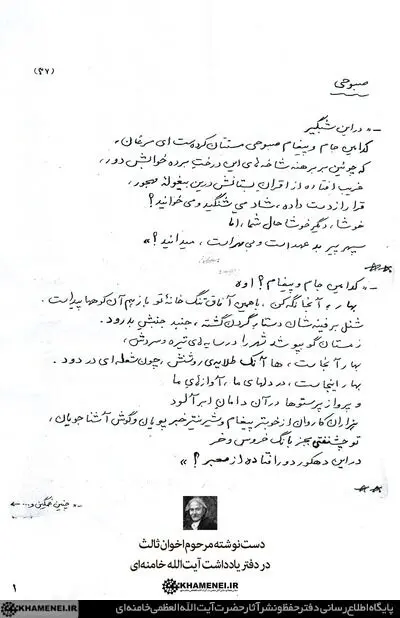 (۴۷)
صبوحی
ـ » در این شبگیر
کدامین جام و پیغام صبوحی مستتان کرده‌ست ای مرغان،
که چونین بر برهنه شاخه‌های این درخت برده خوابش دور،
غریب افتاده از اقران بستانش درین بیغولهٔ مهجور،
قرار از دست داده، شاد می‌شنگید و می‌خوانید؟
خوشا، دیگر خوشا حال شما، اما
سپهر پیر بد عهد است و بی مهر است، میدانید؟ »
ـ » کدامین جام و پیغام؟ اوه
بهار، به آنجا نگه کن، با همین آفاق تنگ خانهٔ تو باز هم آن کوهها پیداست.
شنل برفینه‌شان دستار گردن گشته، جنبد جنبش بدرود.
زمستان گو بپوشد شهر را در سایه‌های تیره و سردش،
بهار آنجاست، ها آنک طلایه‌ی روشنش، چون شعله‌ای در دود.
بهار اینجاست، در دلهای ما، آوازهای ما
و پرواز پرستوها در آن دامان ابرآلود
هزاران کاروان از خوبتر پیغام و شیرین‌تر خبر پویان و گوش آشنا جویان،
تو چشنفتی بجز بانگ خروس و خر
در این دهکور دور افتاده از معبر؟ »
ـ » چنین غمگین و ... ←
دست‌نوشته مرحوم اخوان ثالث
در دفتر یادداشت آیت‌الله خامنه‌ای
KHAMENEI.IR
۱
پایگاه اطلاع‌رسانی دفتر حفظ و نشر آثار حضرت آیت‌الله العظمی خامنه‌ای
KHAMENEI.IR